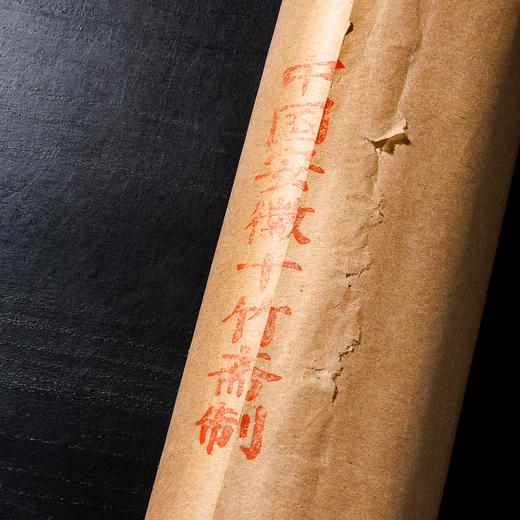 中国安徽十竹斋制